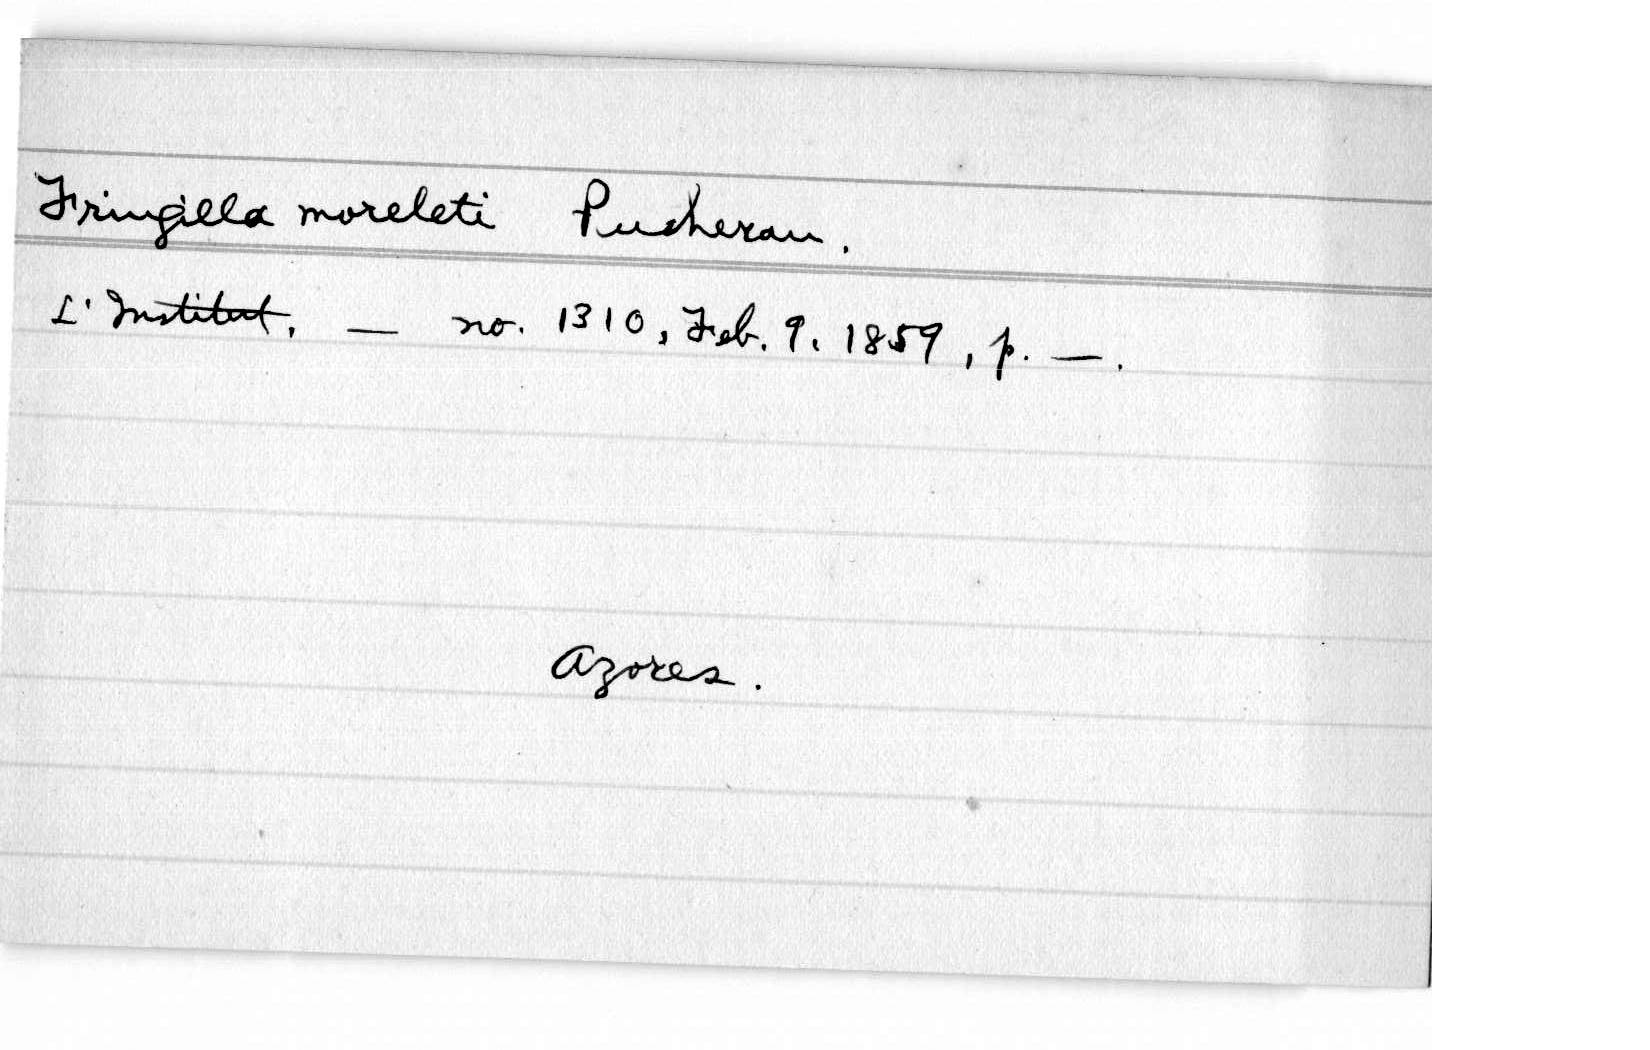 Fringilla moreleti Pucheran.
L'Institut, — no. 1310, Feb. 9. 1859, p. —.
Azores.